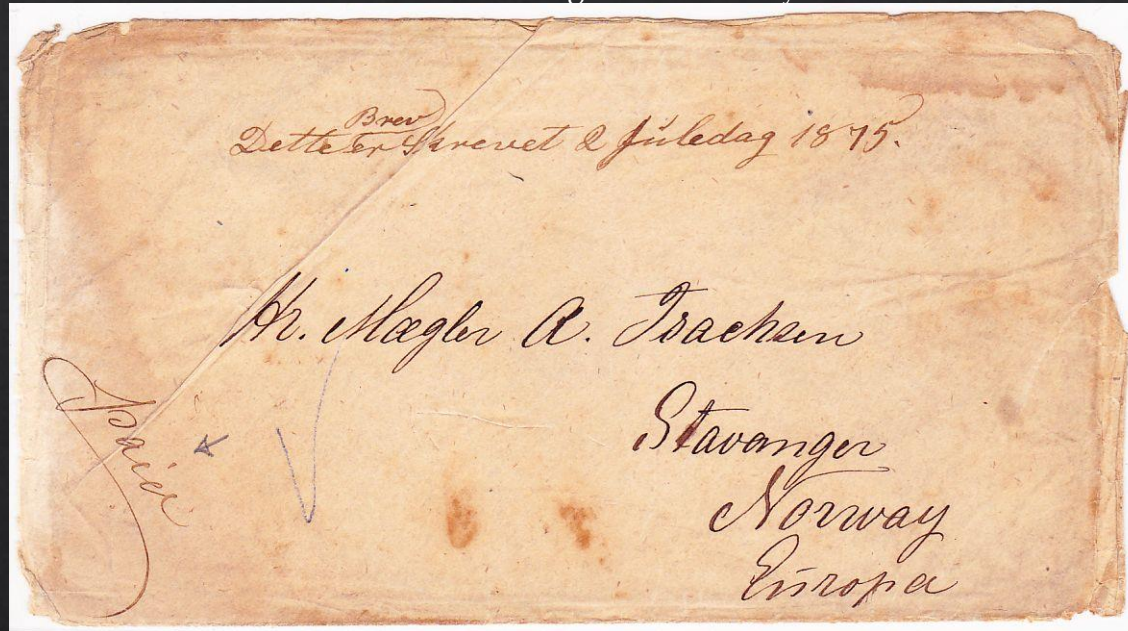 Dette Brev er Skrevet 2 Juledag 1875.
Hr. Mægler A. Isachsen
Stavanger
Norway
Europa
Paid